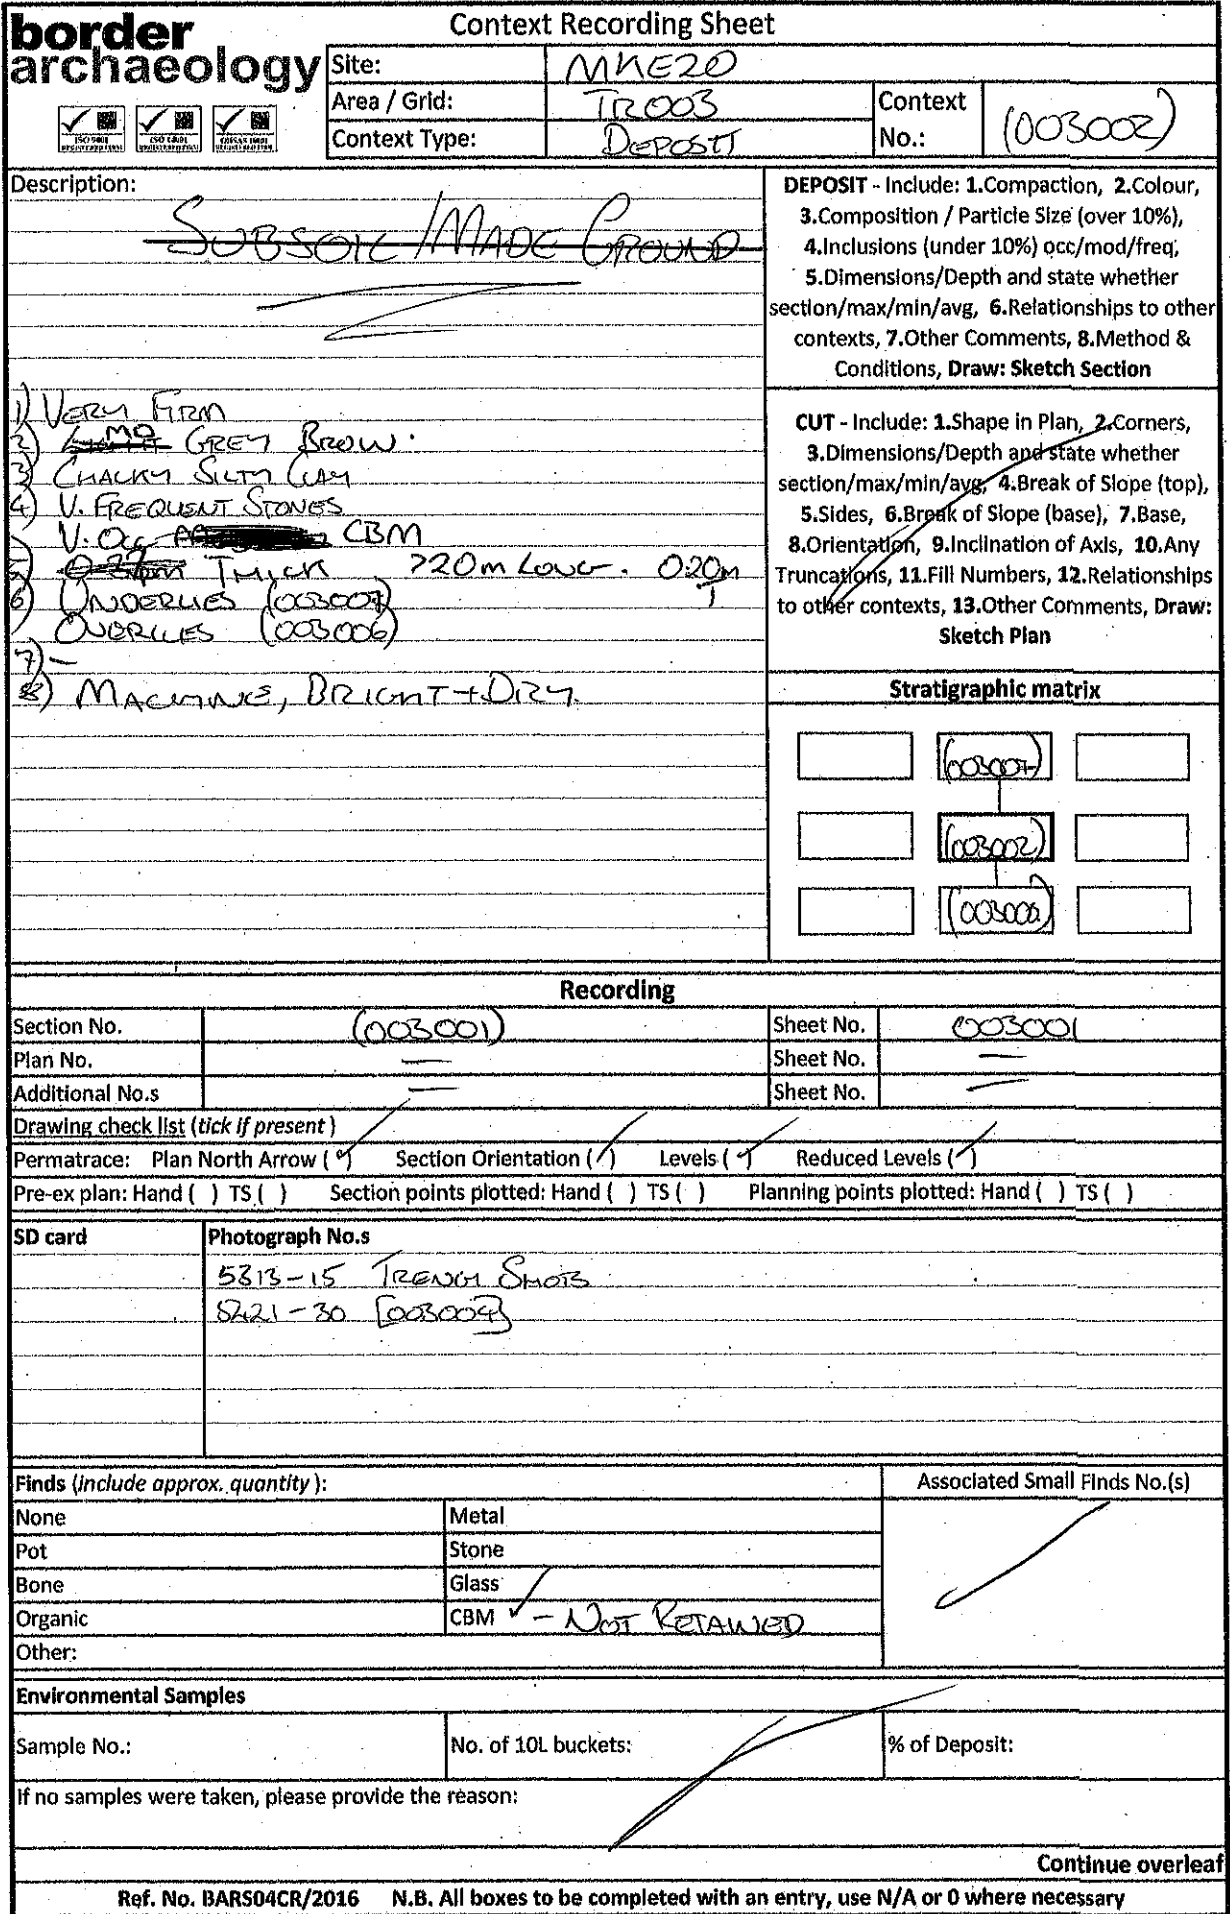 border
archaeology
ISO 9001
ISO 14001
OHSAS 18001
Context Recording Sheet
Site: MKE20
Area / Grid: TR003
Context Type: DEPOSIT
Context No.: (003002)
Description:
SUBSOIL / MADE GROUND
1) VERY FIRM
2) MID GREY BROW.
3) CHALKY SILTY CLAY
4) V. FREQUENT STONES
V. OCC CBM
5) THICK >20m LONG. 0.20m
6) UNDERLIES (003007)
OVERLIES (003006)
7) -
8) MACHINE, BRIGHT + DRY.
DEPOSIT - Include: 1.Compaction, 2.Colour,
3.Composition / Particle Size (over 10%),
4.Inclusions (under 10%) occ/mod/freq,
5.Dimensions/Depth and state whether
section/max/min/avg, 6.Relationships to other
contexts, 7.Other Comments, 8.Method &
Conditions, Draw: Sketch Section
CUT - Include: 1.Shape in Plan, 2.Corners,
3.Dimensions/Depth and state whether
section/max/min/avg, 4.Break of Slope (top),
5.Sides, 6.Break of Slope (base), 7.Base,
8.Orientation, 9.Inclination of Axis, 10.Any
Truncations, 11.Fill Numbers, 12.Relationships
to other contexts, 13.Other Comments, Draw:
Sketch Plan
Stratigraphic matrix
(003007)
(003002)
(003006)
Recording
Section No. (003001) Sheet No. 003001
Plan No. — Sheet No. —
Additional No.s — Sheet No. —
Drawing check list (tick if present)
Permatrace: Plan North Arrow (✓) Section Orientation (✓) Levels (✓) Reduced Levels (✓)
Pre-ex plan: Hand ( ) TS ( ) Section points plotted: Hand ( ) TS ( ) Planning points plotted: Hand ( ) TS ( )
SD card Photograph No.s
5313-15 TRENCH SHOTS
5421-30 [003004]
Finds (include approx. quantity): Associated Small Finds No.(s)
None Metal
Pot Stone
Bone Glass
Organic CBM ✓ - NOT RETAINED
Other:
Environmental Samples
Sample No.: No. of 10L buckets: % of Deposit:
If no samples were taken, please provide the reason:
Continue overleaf
Ref. No. BARS04CR/2016 N.B. All boxes to be completed with an entry, use N/A or 0 where necessary